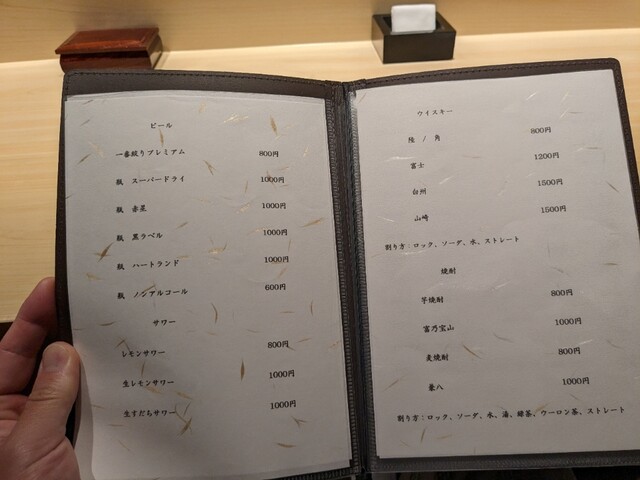 ビール
一番絞りプレミアム 800円
瓶 スーパードライ 1000円
瓶 赤星 1000円
瓶 黒ラベル 1000円
瓶 ハートランド 1000円
瓶 ノンアルコール 600円
サワー
レモンサワー 800円
生レモンサワー 1000円
生すだちサワー 1000円
ウイスキー
陸 / 角 800円
富士 1200円
白州 1500円
山崎 1500円
割り方：ロック、ソーダ、水、ストレート
焼酎
芋焼酎 800円
富乃宝山 1000円
麦焼酎 800円
兼八 1000円
割り方：ロック、ソーダ、水、湯、緑茶、ウーロン茶、ストレート